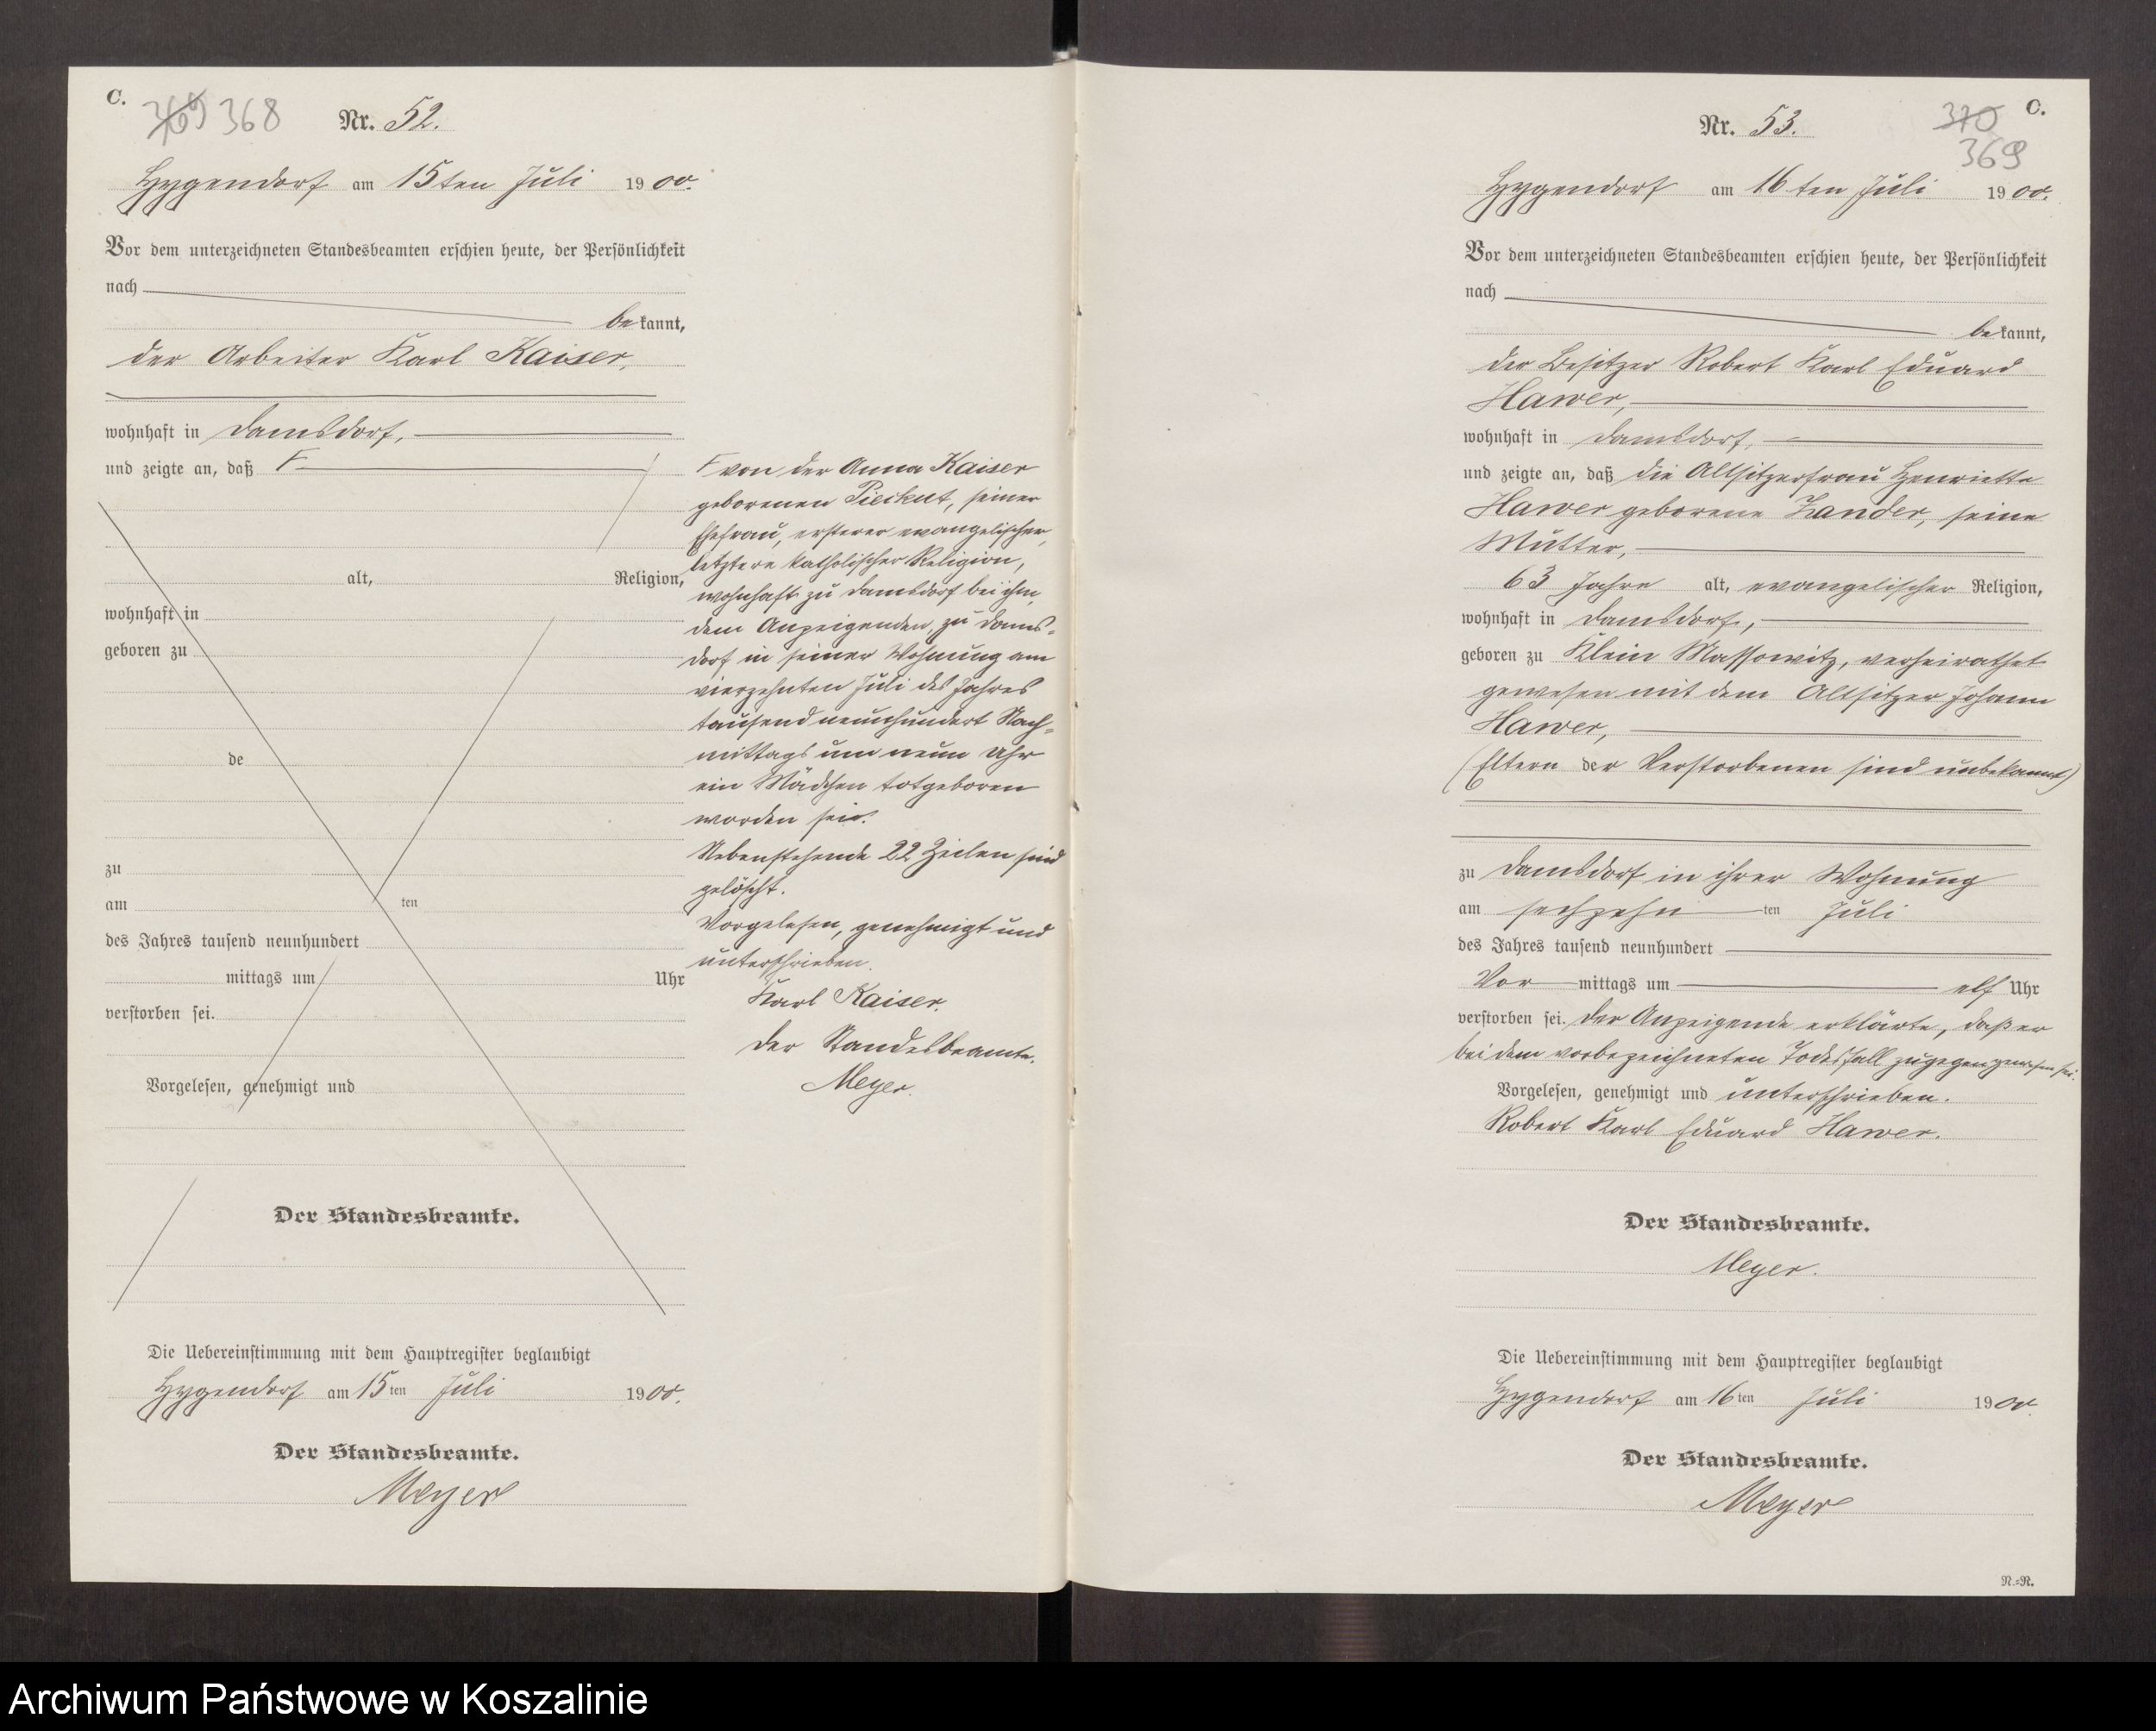 C.
369 368 Nr. 52.
Hygendorf am 15ten Juli 1900.
Vor dem unterzeichneten Standesbeamten erschien heute, der Persönlichkeit
nach
bekannt,
der Arbeiter Karl Kaiser,
wohnhaft in Damsdorf,
und zeigte an, daß F
alt, Religion,
wohnhaft in
geboren zu
de
zu
am ten
des Jahres tausend neunhundert
mittags um Uhr
verstorben sei.
Vorgelesen, genehmigt und
Der Standesbeamte.
Die Uebereinstimmung mit dem Hauptregister beglaubigt
Hygendorf am 15ten Juli 1900.
Der Standesbeamte.
Meyer
F von der Anna Kaiser
geborenen Pieckut, seiner
Ehefrau, ersterer evangelischer,
letztere katholischer Religion,
wohnhaft zu Damsdorf bei ihm,
dem Anzeigenden, zu Dams-
dorf in seiner Wohnung am
vierzehnten Juli des Jahres
tausend neunhundert Nach-
mittags um neun Uhr
ein Mädchen totgeboren
worden sei.
Nebenstehende 22 Zeilen sind
gelöscht.
Vorgelesen, genehmigt und
unterschrieben.
Karl Kaiser.
Der Standesbeamte.
Meyer.
Nr. 53. 370 C.
369
Hygendorf am 16ten Juli 1900.
Vor dem unterzeichneten Standesbeamten erschien heute, der Persönlichkeit
nach
bekannt,
der Besitzer Robert Karl Eduard
Hawer,
wohnhaft in Damsdorf,
und zeigte an, daß die Altsitzerfrau Henriette
Hawer geborene Zander, seine
Mutter,
63 Jahre alt, evangelischer Religion,
wohnhaft in Damsdorf,
geboren zu Klein Massowitz, verheirathet
gewesen mit dem Altsitzer Johann
Hawer,
(Eltern der Verstorbenen sind unbekannt)
zu Damsdorf in ihrer Wohnung
am sechzehn ten Juli
des Jahres tausend neunhundert
Vor mittags um elf Uhr
verstorben sei. Der Anzeigende erklärte, daß er
bei dem vorbezeichneten Todesfall zugegen gewesen sei.
Vorgelesen, genehmigt und unterschrieben.
Robert Karl Eduard Hawer.
Der Standesbeamte.
Meyer.
Die Uebereinstimmung mit dem Hauptregister beglaubigt
Hygendorf am 16ten Juli 1900.
Der Standesbeamte.
Meyer
N.=N.
Archiwum Państwowe w Koszalinie